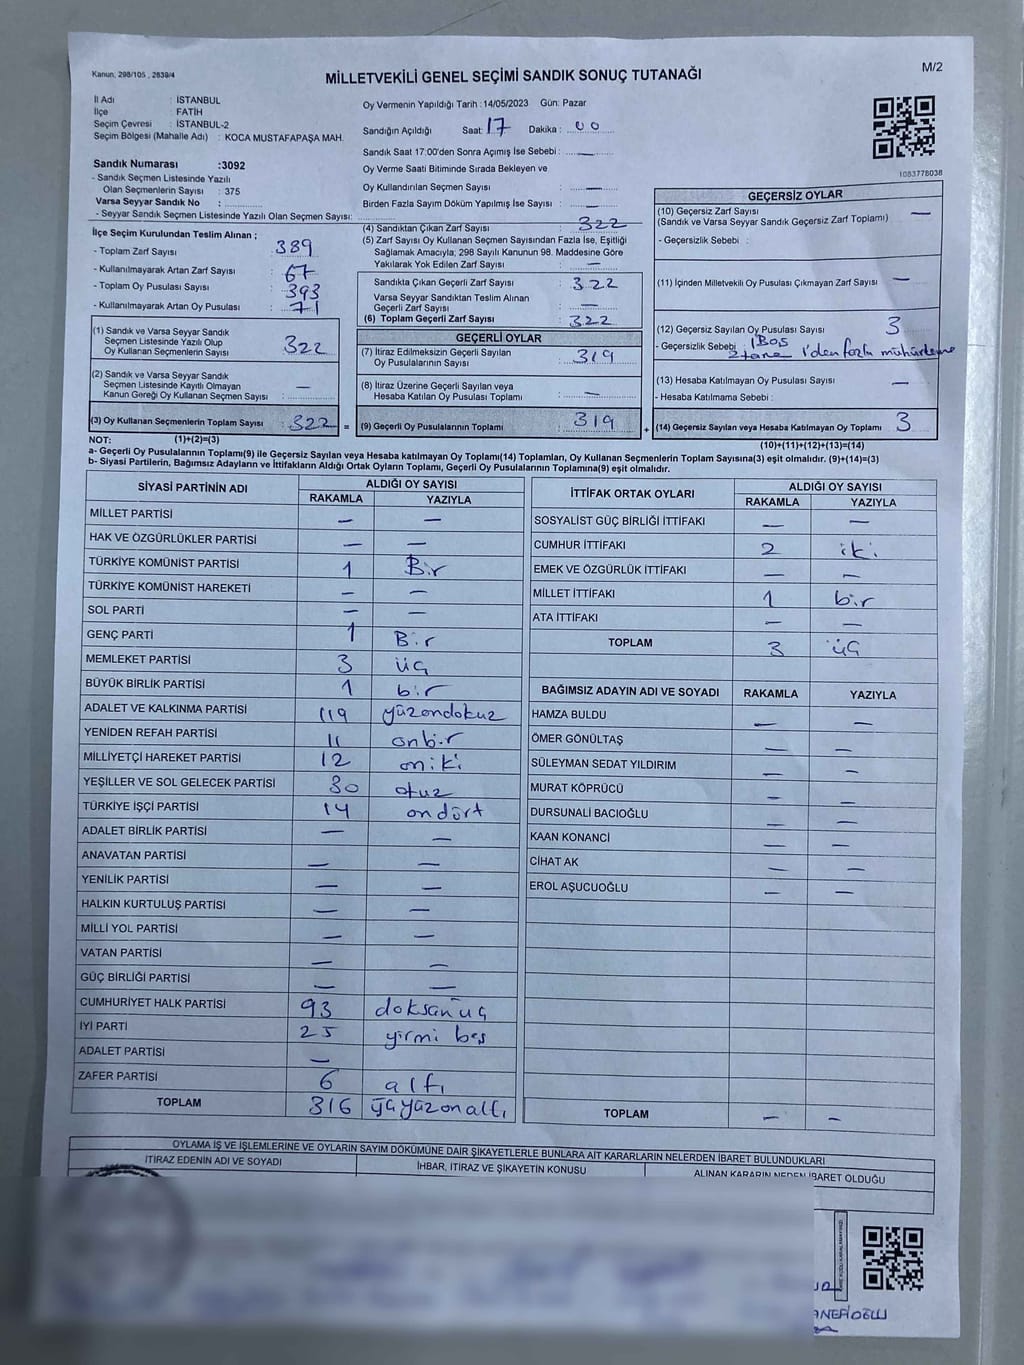 Kanun, 298/105 , 2839/4
MİLLETVEKİLİ GENEL SEÇİMİ SANDIK SONUÇ TUTANAĞI
M/2
İl Adı : İSTANBUL
İlçe : FATİH
Seçim Çevresi : İSTANBUL-2
Seçim Bölgesi (Mahalle Adı) : KOCA MUSTAFAPAŞA MAH.
Sandık Numarası :3092
- Sandık Seçmen Listesinde Yazılı
Olan Seçmenlerin Sayısı : 375
Varsa Seyyar Sandık No :
- Seyyar Sandık Seçmen Listesinde Yazılı Olan Seçmen Sayısı:
Oy Vermenin Yapıldığı Tarih :14/05/2023 Gün: Pazar
Sandığın Açıldığı Saat: 17 Dakika : 00
Sandık Saat 17:00'den Sonra Açımış İse Sebebi : —
Oy Verme Saati Bitiminde Sırada Bekleyen ve
Oy Kullandırılan Seçmen Sayısı : —
Birden Fazla Sayım Döküm Yapılmış İse Sayısı : —
1083778038
İlçe Seçim Kurulundan Teslim Alınan ;
- Toplam Zarf Sayısı : 389
- Kullanılmayarak Artan Zarf Sayısı : 67
- Toplam Oy Pusulası Sayısı : 393
- Kullanılmayarak Artan Oy Pusulası : 71
(1) Sandık ve Varsa Seyyar Sandık
Seçmen Listesinde Yazılı Olup
Oy Kullanan Seçmenlerin Sayısı : 322
(2) Sandık ve Varsa Seyyar Sandık
Seçmen Listesinde Kayıtlı Olmayan
Kanun Gereği Oy Kullanan Seçmen Sayısı : —
(3) Oy Kullanan Seçmenlerin Toplam Sayısı : 322 =
(4) Sandıktan Çıkan Zarf Sayısı : 322
(5) Zarf Sayısı Oy Kullanan Seçmen Sayısından Fazla İse, Eşitliği
Sağlamak Amacıyla; 298 Sayılı Kanunun 98. Maddesine Göre
Yakılarak Yok Edilen Zarf Sayısı : —
Sandıkta Çıkan Geçerli Zarf Sayısı : 322
Varsa Seyyar Sandıktan Teslim Alınan
Geçerli Zarf Sayısı : —
(6) Toplam Geçerli Zarf Sayısı : 322
GEÇERLİ OYLAR
(7) İtiraz Edilmeksizin Geçerli Sayılan
Oy Pusulalarının Sayısı : 319
(8) İtiraz Üzerine Geçerli Sayılan veya
Hesaba Katılan Oy Pusulası Toplamı : —
(9) Geçerli Oy Pusulalarının Toplamı : 319 +
GEÇERSİZ OYLAR
(10) Geçersiz Zarf Sayısı : —
(Sandık ve Varsa Seyyar Sandık Geçersiz Zarf Toplamı)
- Geçersizlik Sebebi :
(11) İçinden Milletvekili Oy Pusulası Çıkmayan Zarf Sayısı : —
(12) Geçersiz Sayılan Oy Pusulası Sayısı : 3
- Geçersizlik Sebebi : 1 Boş
2 tane 1'den fazla mühürleme
(13) Hesaba Katılmayan Oy Pusulası Sayısı : —
- Hesaba Katılmama Sebebi :
(14) Geçersiz Sayılan veya Hesaba Katılmayan Oy Toplamı : 3
NOT: (1)+(2)=(3)
(10)+(11)+(12)+(13)=(14)
a- Geçerli Oy Pusulalarının Toplamı(9) ile Geçersiz Sayılan veya Hesaba katılmayan Oy Toplamı(14) Toplamları, Oy Kullanan Seçmenlerin Toplam Sayısına(3) eşit olmalıdır. (9)+(14)=(3)
b- Siyasi Partilerin, Bağımsız Adayların ve İttifakların Aldığı Ortak Oyların Toplamı, Geçerli Oy Pusulalarının Toplamına(9) eşit olmalıdır.
SİYASİ PARTİNİN ADI ALDIĞI OY SAYISI
RAKAMLA YAZIYLA
MİLLET PARTİSİ — —
HAK VE ÖZGÜRLÜKLER PARTİSİ — —
TÜRKİYE KOMÜNİST PARTİSİ 1 Bir
TÜRKİYE KOMÜNİST HAREKETİ — —
SOL PARTİ — —
GENÇ PARTİ 1 Bir
MEMLEKET PARTİSİ 3 üç
BÜYÜK BİRLİK PARTİSİ 1 bir
ADALET VE KALKINMA PARTİSİ 119 yüzondokuz
YENİDEN REFAH PARTİSİ 11 onbir
MİLLİYETÇİ HAREKET PARTİSİ 12 oniki
YEŞİLLER VE SOL GELECEK PARTİSİ 30 otuz
TÜRKİYE İŞÇİ PARTİSİ 14 ondört
ADALET BİRLİK PARTİSİ — —
ANAVATAN PARTİSİ — —
YENİLİK PARTİSİ — —
HALKIN KURTULUŞ PARTİSİ — —
MİLLİ YOL PARTİSİ — —
VATAN PARTİSİ — —
GÜÇ BİRLİĞİ PARTİSİ — —
CUMHURİYET HALK PARTİSİ 93 doksanüç
İYİ PARTİ 25 yirmi beş
ADALET PARTİSİ —
ZAFER PARTİSİ 6 altı
TOPLAM 316 üçyüzonaltı
İTTİFAK ORTAK OYLARI ALDIĞI OY SAYISI
RAKAMLA YAZIYLA
SOSYALİST GÜÇ BİRLİĞİ İTTİFAKI — —
CUMHUR İTTİFAKI 2 iki
EMEK VE ÖZGÜRLÜK İTTİFAKI — —
MİLLET İTTİFAKI 1 bir
ATA İTTİFAKI — —
TOPLAM 3 üç
BAĞIMSIZ ADAYIN ADI VE SOYADI RAKAMLA YAZIYLA
HAMZA BULDU — —
ÖMER GÖNÜLTAŞ — —
SÜLEYMAN SEDAT YILDIRIM — —
MURAT KÖPRÜCÜ — —
DURSUNALİ BACIOĞLU — —
KAAN KONANCİ — —
CİHAT AK — —
EROL AŞUCUOĞLU — —
TOPLAM — —
OYLAMA İŞ VE İŞLEMLERİNE VE OYLARIN SAYIM DÖKÜMÜNE DAİR ŞİKAYETLERLE BUNLARA AİT KARARLARIN NELERDEN İBARET BULUNDUKLARI
İTİRAZ EDENİN ADI VE SOYADI İHBAR, İTİRAZ VE ŞİKAYETİN KONUSU ALINAN KARARIN NEDEN İBARET OLDUĞU